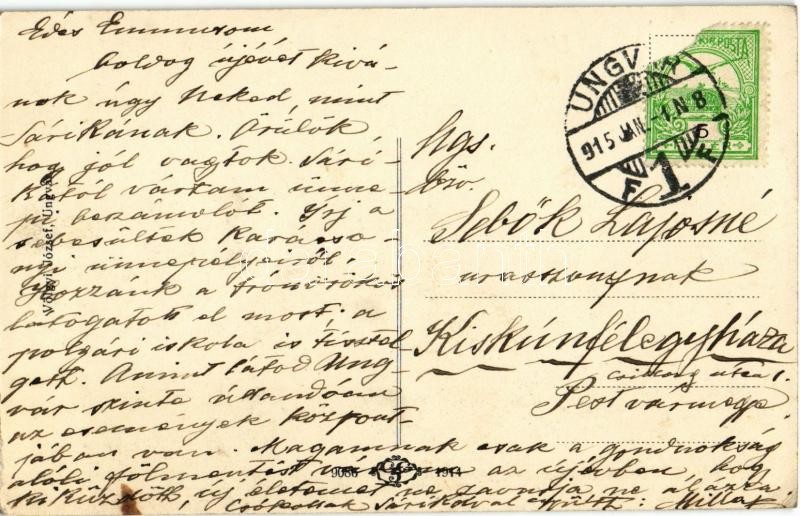 Édes Emmusom
boldog újévet kívá-
nok úgy Neked, mint
Sárikának. Örülök,
hogy jól vagytok. Sári-
kától vártam ünne-
pi beszámolót. Írj a
sebesültek karácso-
nyi ünnepélyeiről.
Hozzánk a trónörökös
látogatott el most; a
polgári iskola is tisztel-
gett. Amint látod Ung-
vár szinte állandóan
az események központ-
jában van. Magamnak csak a gondnokság
alóli fölmentést az újévben, hogy
kiküzdött új életemet ne zavarja ne alázza
Csókollak Sárikával együtt: Milla
Ngs.
özv.
Sebők Lajosné
urasszonynak
Kiskúnfélegyháza
utca 1.
Pestvármegye
UNGVÁR
915 JAN. -1. N 8
F 1 F
KIR. POSTA
5
Völgyi József, Ungvár
9086 1914